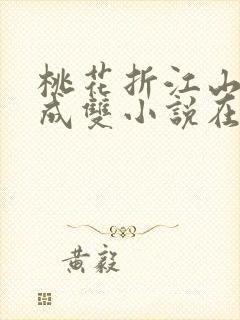 桃花折江山
成雙小說在
黃毅